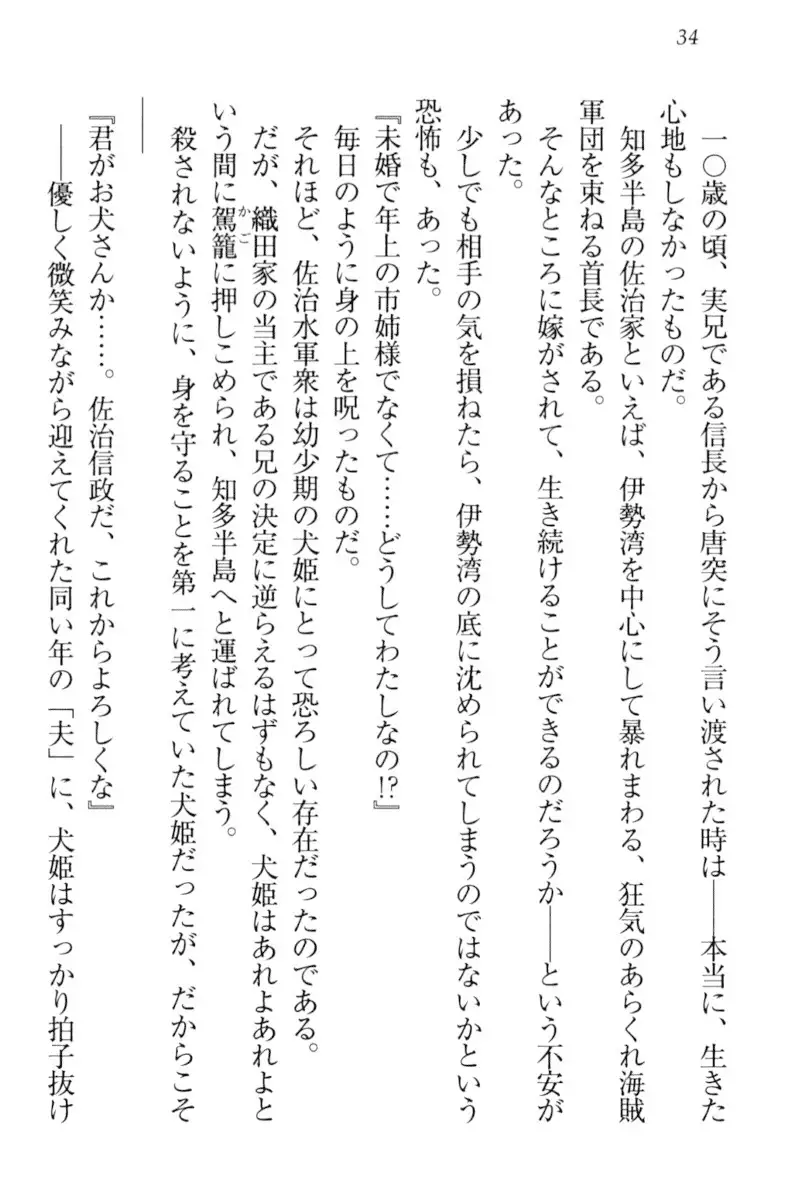 34
一〇歳の頃、実兄である信長から唐突にそう言い渡された時は――本当に、生きた
心地もしなかったものだ。
知多半島の佐治家といえば、伊勢湾を中心にして暴れまわる、狂気のあらくれ海賊
軍団を束ねる首長である。
そんなところに嫁がされて、生き続けることができるのだろうか――という不安が
あった。
少しでも相手の気を損ねたら、伊勢湾の底に沈められてしまうのではないかという
恐怖も、あった。
『未婚で年上の市姉様でなくて……どうしてわたしなの!?』
毎日のように身の上を呪ったものだ。
それほど、佐治水軍衆は幼少期の犬姫にとって恐ろしい存在だったのである。
だが、織田家の当主である兄の決定に逆らえるはずもなく、犬姫はあれよあれよと
いう間に駕籠に押しこめられ、知多半島へと運ばれてしまう。
かご
殺されないように、身を守ることを第一に考えていた犬姫だったが、だからこそ
――
『君がお犬さんか……。佐治信政だ、これからよろしくな』
――優しく微笑みながら迎えてくれた同い年の「夫」に、犬姫はすっかり拍子抜け